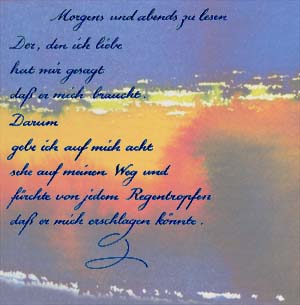 Morgens und abends zu lesen
Der, den ich liebe
hat mir gesagt
daß er mich braucht.
Darum
gebe ich auf mich acht
sehe auf meinen Weg und
fürchte von jedem Regentropfen
daß er mich erschlagen könnte.